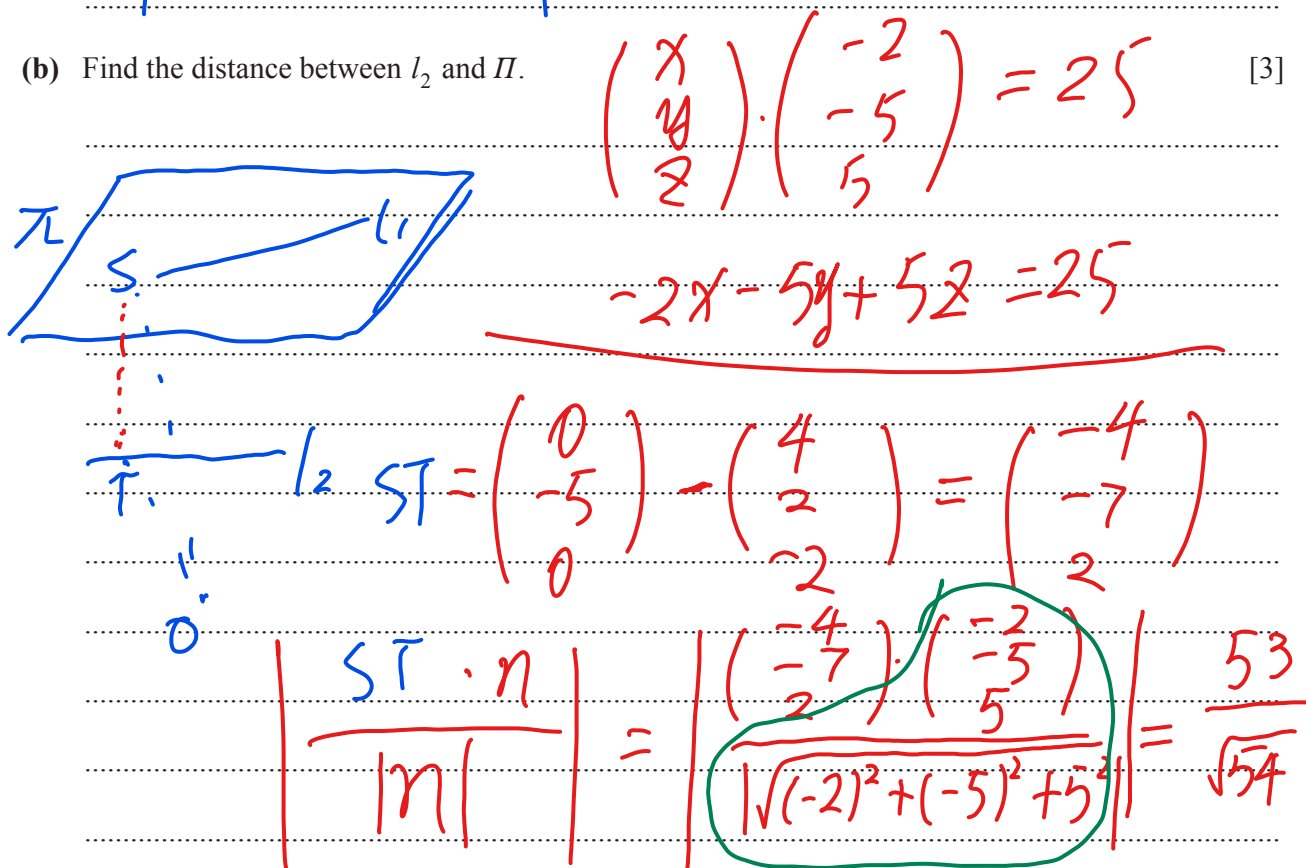 (b) Find the distance between l₂ and Π. [3]
(x y z) · (-2 -5 5) = 25
π S l₁
-2x - 5y + 5z = 25
T l₂ ST = (0 -5 0) - (4 2 -2) = (-4 -7 2)
O
|ST · n / |n|| = |(-4 -7 2) · (-2 -5 5) / |√((-2)² + (-5)² + 5²)|| = 53/√54